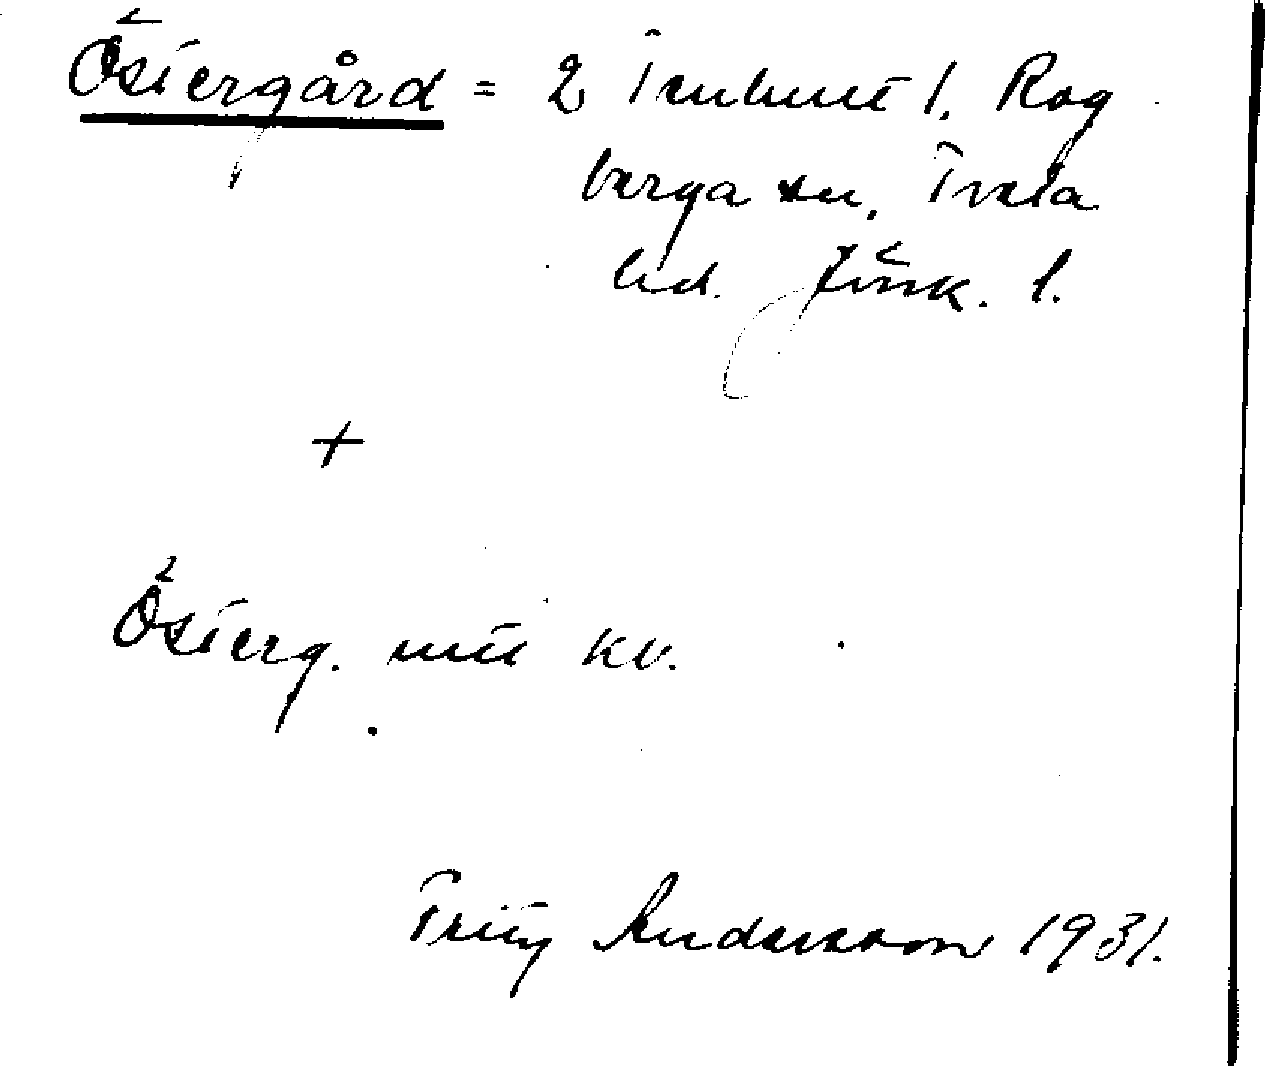 Östergård = 2 Tenhult l. Rog
berga sn, Tveta
hd. Jönk. l.
+
Österg. mtl kv.
Fritz Andersson 1931.